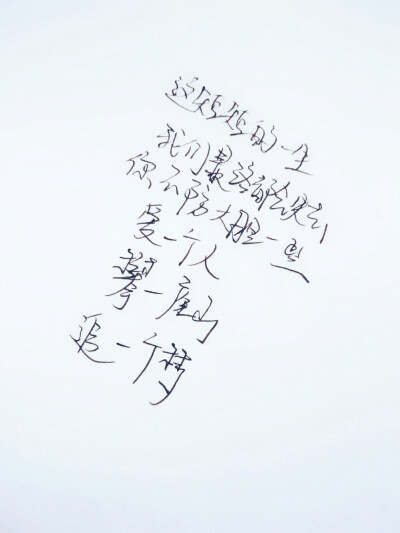 这短短的一生
我们最终都会失去
你不妨大胆一些
爱一个人
攀一座山
追一个梦